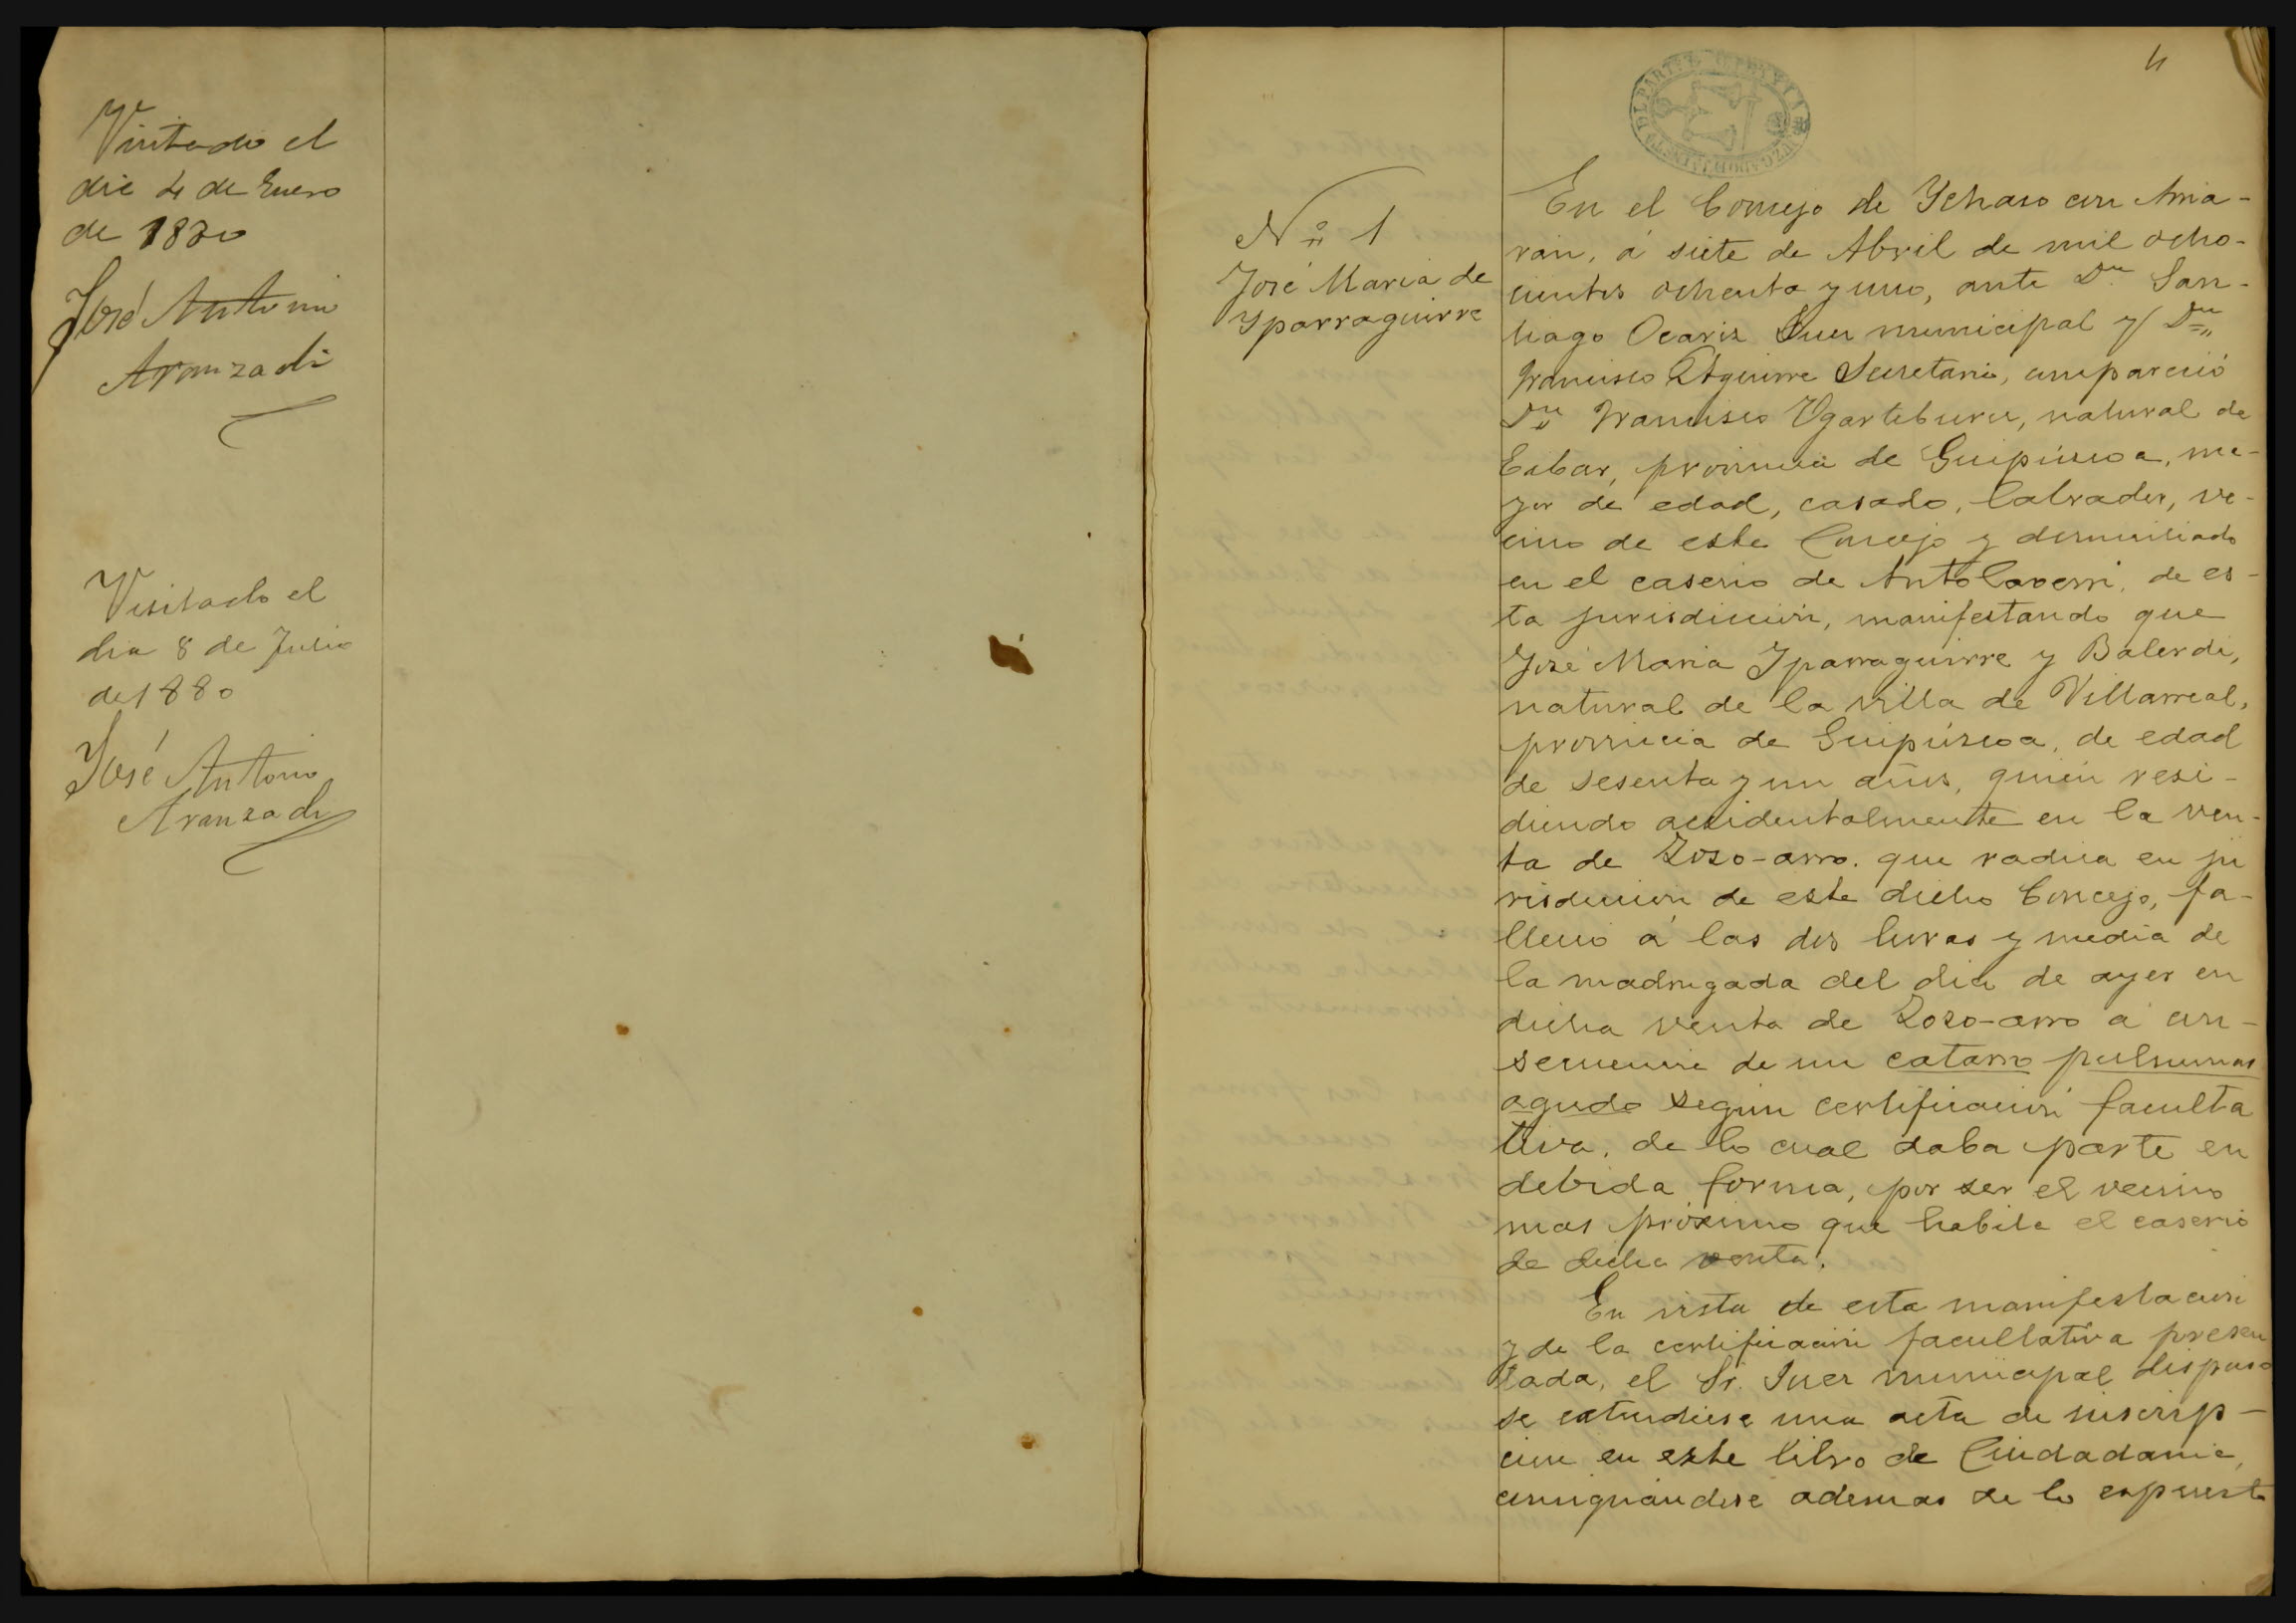 Visitado el
dia 4 de Enero
de 1880
José Antonio
Aranzadi
Visitado el
dia 8 de Julio
de 1880
José Antonio
Aranzadi
4
Nº 1
José Maria de
Yparraguirre
En el Concejo de Ychaso con Arria-
rán, á siete de Abril de mil ocho-
cientos ochenta y uno, ante Dn San-
tiago Ocariz Juez municipal y Dn
Francisco Aguirre Secretario, compareció
Dn Francisco Ugarteburu, natural de
Eibar, provincia de Guipúzcoa, ma-
yor de edad, casado, labrador, ve-
cino de este Concejo y domiciliado
en el caserio de Antolaverri, de es-
ta jurisdicción, manifestando que
José Maria Yparraguirre y Balerdi,
natural de la villa de Villarreal,
provincia de Guipúzcoa, de edad
de sesenta y un años, quien resi-
diendo accidentalmente en la ven-
ta de Zozo-arro. que radica en ju
risdiccion de este dicho Concejo, fa-
lleció á las dos horas y media de
la madrugada del dia de ayer en
dicha venta de Zozo-arro á con-
secuencia de un catarro pulmonar
agudo segun certificación faculta
tiva, de lo cual daba parte en
debida forma, por ser el vecino
mas próximo que habita el caserio
de dicha venta.
En vista de esta manifestación
y de la certificación facultativa presen
tada, el Sr. Juez municipal dispuso
se extendiese una acta de inscrip-
cion en este libro de Ciudadania,
consignándose ademas de lo expuesto